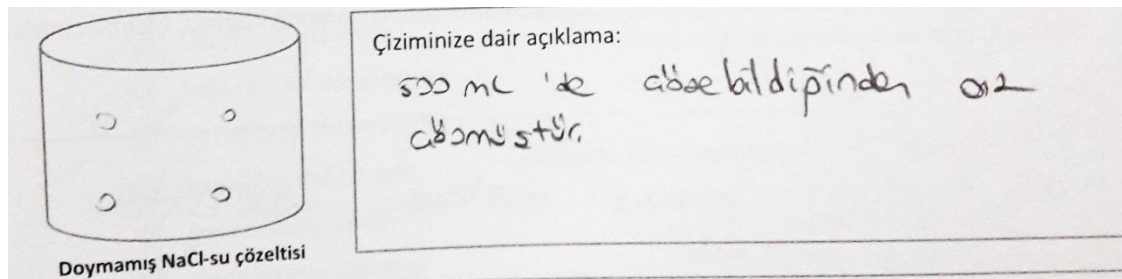 Çiziminize dair açıklama:
500 mL 'de çözebildiğinden az
çözmüştür.
Doymamış NaCl-su çözeltisi